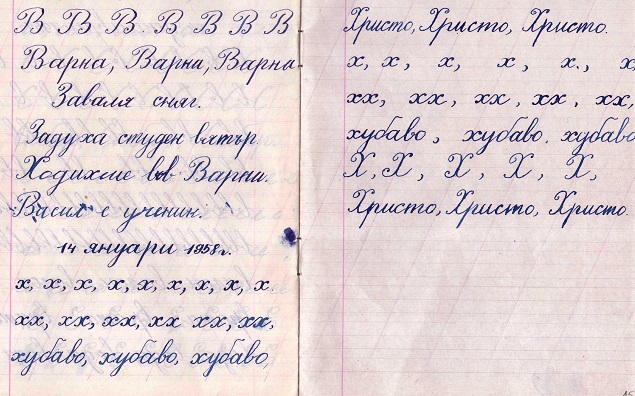 В В В. В В В В
Варна, Варна, Варна
Заваля сняг.
Задуха студен вятър
Ходихме във Варна.
Васил е ученик.
14 януари 1958 г.
х, х, х, х, х, х, х, х, х.
хх, хх, хх, хх хх, хх,
хубаво, хубаво, хубаво,
Христо, Христо, Христо.
х, х, х, х, х., х
хх, хх, хх, хх, хх,
хубаво, хубаво. хубаво
Х, Х, Х, Х, Х,
Христо, Христо, Христо.